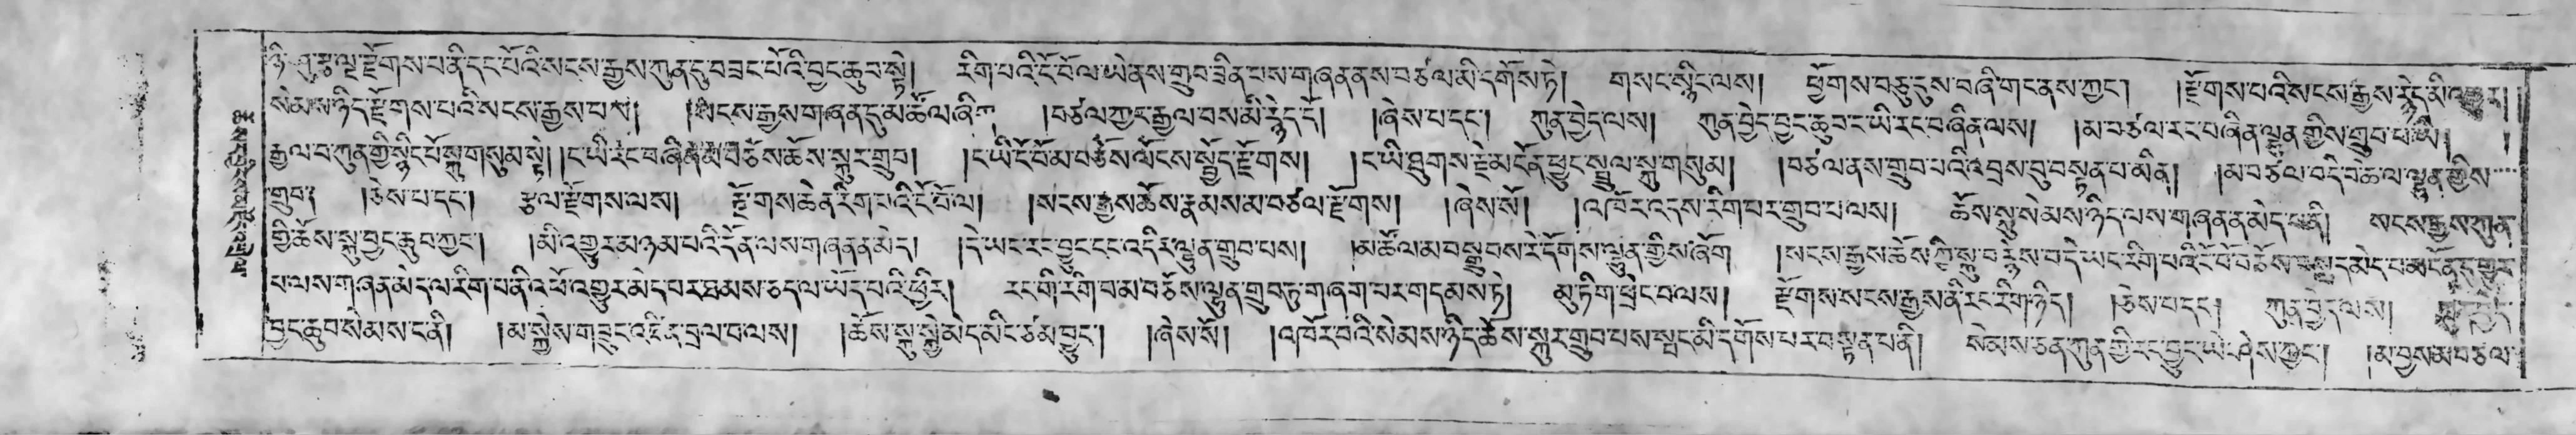 ཉི་ཤུ་རྩལ་རྫོགས་པ་ནི་དང་པོའི་སངས་རྒྱས་ཀུན་ཏུ་བཟང་པོའི་བྱང་ཆུབ་སྟེ། རིག་པའི་ངོ་བོ་ལ་ཡེ་ནས་གྲུབ་ཟིན་པས་གཞན་ནས་བཙལ་མི་དགོས་ཏེ། གསང་སྙིང་ལས། ཕྱོགས་བཅུ་དུས་བཞི་གང་ནས་ཀྱང་། །རྫོགས་པའི་སངས་རྒྱས་རྙེད་མི་འགྱུར།
སེམས་ཉིད་རྫོགས་པའི་སངས་རྒྱས་པས། །སངས་རྒྱས་གཞན་དུ་མ་ཚོལ་ཞིག །བཙལ་ཀྱང་རྒྱལ་བས་མི་རྙེད་དོ། །ཞེས་པ་དང་། ཀུན་བྱེད་ལས། ཀུན་བྱེད་བྱང་ཆུབ་ང་ཡི་རང་བཞིན་ལས། །མ་བཙལ་རང་བཞིན་ལྷུན་གྱིས་གྲུབ་པ་ཡི། །
རྒྱལ་བ་ཀུན་གྱི་སྙིང་པོ་སྐུ་གསུམ་སྟེ། །ང་ཡི་རང་བཞིན་མ་བཅོས་ཆོས་སྐུར་གྲུབ། །ང་ཡི་ངོ་བོ་མ་བཅོས་ལོངས་སྤྱོད་རྫོགས། །ང་ཡི་ཐུགས་རྗེ་མངོན་ཕྱུང་སྤྲུལ་སྐུ་གསུམ། །བཙལ་ནས་གྲུབ་པའི་འབྲས་བུ་བསྟན་པ་མིན། །མ་བཙལ་བདེ་བ་ཆེ་ལ་ལྷུན་གྱིས་
གྲུབ། །ཅེས་པ་དང་། རྩལ་རྫོགས་ལས། རྫོགས་ཆེན་རིག་པའི་ངོ་བོ་ལ། །སངས་རྒྱས་ཆོས་རྣམས་མ་བཙལ་རྫོགས། །ཞེས་སོ། །འཁོར་འདས་རིག་པར་གྲུབ་པ་ལས། ཆོས་སྐུ་སེམས་ཉིད་ལས་གཞན་ན་མེད་པ་ནི། སངས་རྒྱས་ཀུན་
གྱི་ཆོས་སྐུ་བྱང་ཆུབ་ཀྱང་། །མི་འགྱུར་མཉམ་པའི་དོན་ལས་གཞན་ན་མེད། །དེ་ཡང་རང་བྱུང་ངང་འདིར་ལྷུན་གྲུབ་པས། །མ་ཚོལ་མ་བསྒྲུབས་རེ་དོགས་ལྷུན་གྱིས་ཞོག །སངས་རྒྱས་ཆོས་ཀྱི་སྐུ་བརྙེས་པ་དེ་ཡང་རིག་པའི་ངོ་བོ་བཅོས་བསླད་མེད་པ་མངོན་དུ་གྱུར་
པ་ལས་གཞན་མེད་ལ་རིག་པ་ནི་འཕོ་འགྱུར་མེད་པར་ཐམས་ཅད་ལ་ཡོད་པའི་ཕྱིར། རང་གི་རིག་པ་མ་བཅོས་ལྷུན་གྲུབ་ཏུ་གཞག་པར་གདམས་ཏེ། མུ་ཏིག་ཕྲེང་བ་ལས། རྫོགས་སངས་རྒྱས་ནི་རང་རིག་ཉིད། །ཅེས་པ་དང་། ཀུན་བྱེད་ལས།
བྱང་ཆུབ་སེམས་ང་ནི། །མ་སྐྱེས་གཟུང་འཛིན་བྲལ་བ་ལས། །ཆོས་སྐུ་སྐྱེ་མེད་མིང་ཙམ་བྱུང་། །ཞེས་སོ། །འཁོར་བའི་སེམས་ཉིད་ཆོས་སྐུར་གྲུབ་པས་སྤང་མི་དགོས་པར་བསྟན་པ་ནི། སེམས་ཅན་ཀུན་གྱི་རང་བྱུང་ཡེ་ཤེས་ཀྱང་། །མ་བྱས་མ་བཙལ་